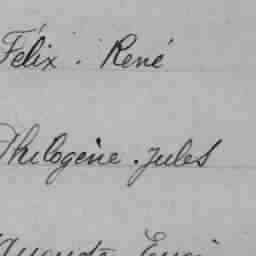 Félix. René
Philogène. Jules